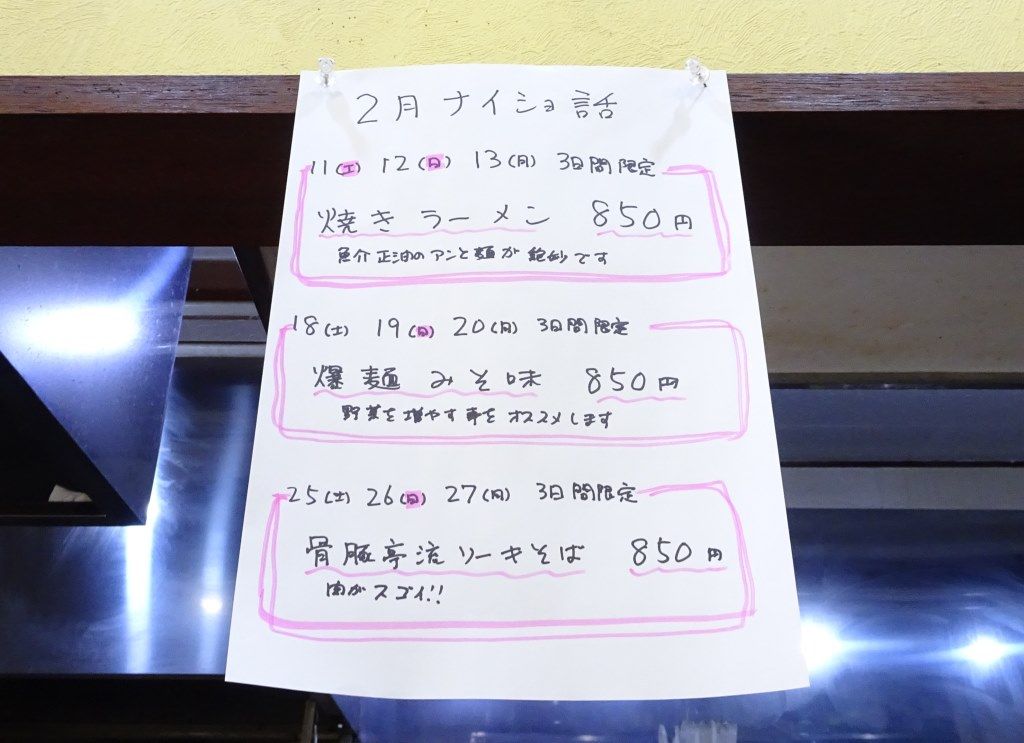 2月ナイショ話
11(土) 12(日) 13(月) 3日間限定
焼きラーメン 850円
魚介正油のアンと麺が絶妙です
18(土) 19(日) 20(月) 3日間限定
爆麺みそ味 850円
野菜を増やす事をオススメします
25(土) 26(日) 27(月) 3日間限定
骨豚亭流ソーキそば 850円
肉がスゴイ!!